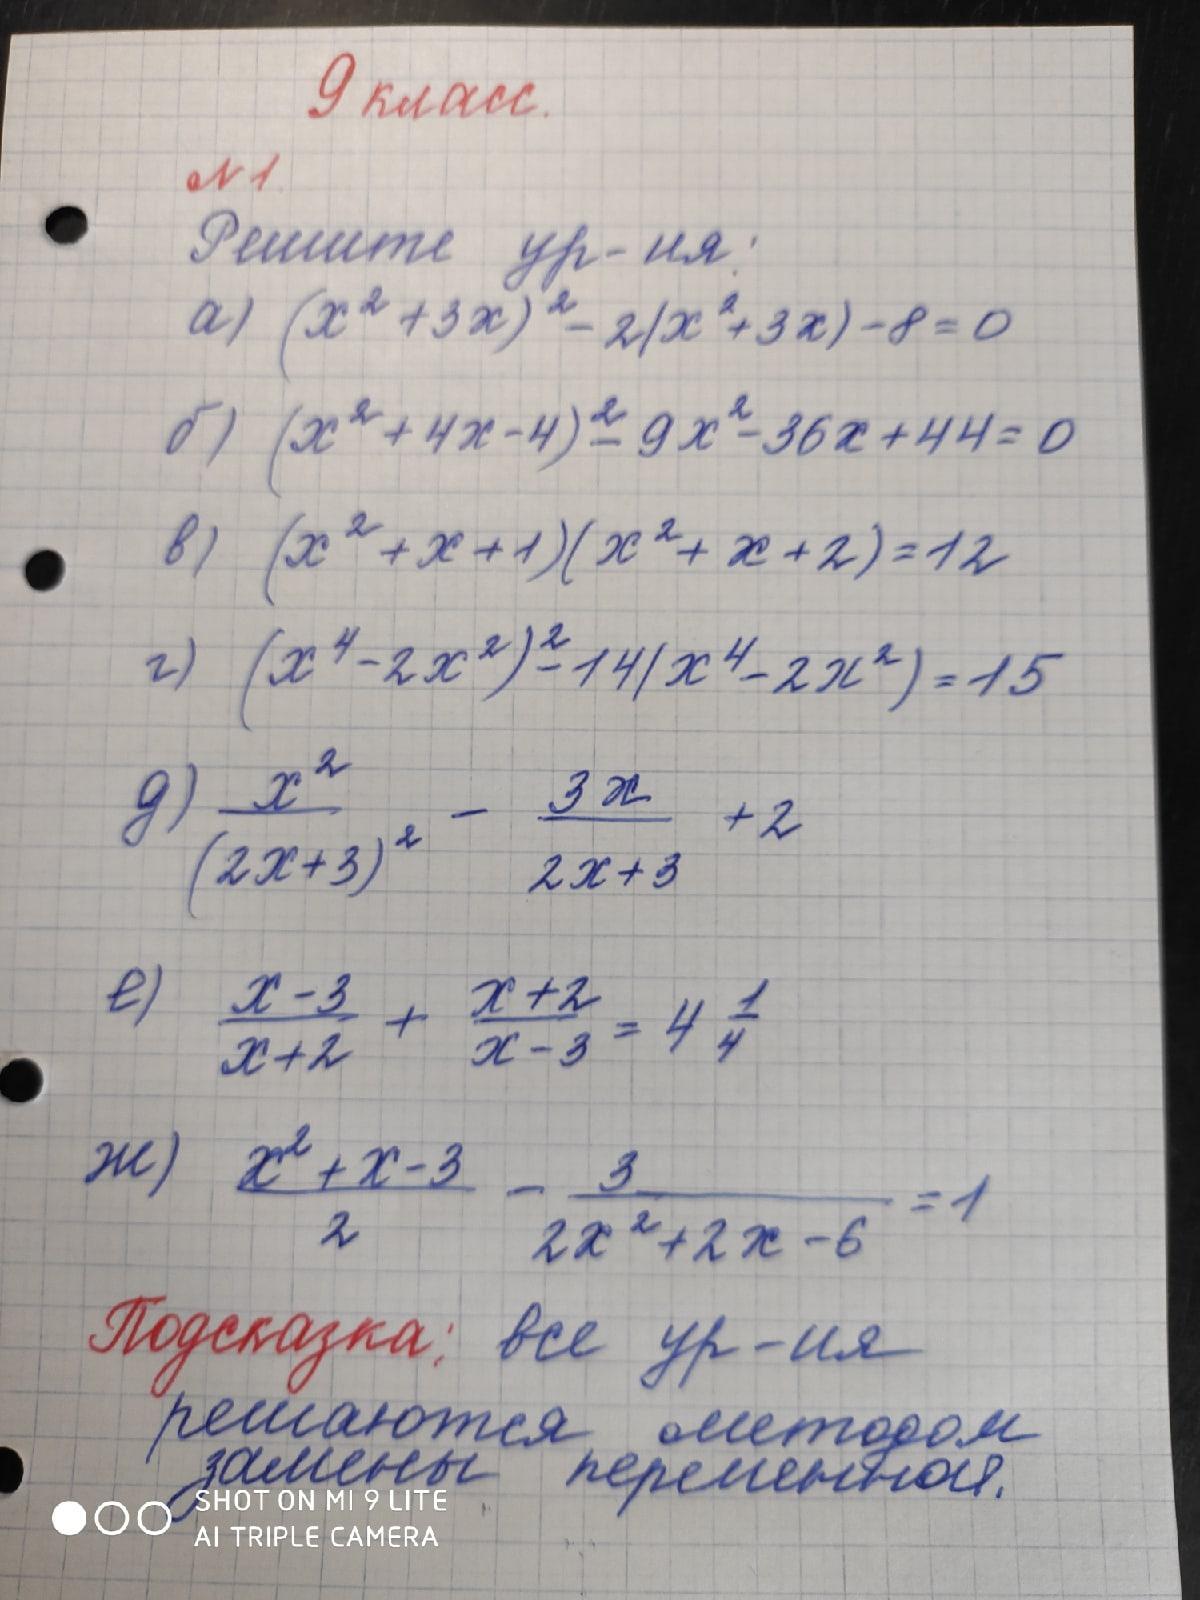 9 класс.
№1.
Решите ур-ия:
а) (x² + 3x)² - 2(x² + 3x) - 8 = 0
б) (x² + 4x - 4)² - 9x² - 36x + 44 = 0
в) (x² + x + 1)(x² + x + 2) = 12
г) (x⁴ - 2x²)² - 14(x⁴ - 2x²) = 15
д) x²/(2x+3)² - 3x/(2x+3) + 2
е) (x-3)/(x+2) + (x+2)/(x-3) = 4 1/4
ж) (x² + x - 3)/2 - 3/(2x² + 2x - 6) = 1
Подсказка: все ур-ия
решаются методом
замены переменной.
SHOT ON MI 9 LITE
AI TRIPLE CAMERA